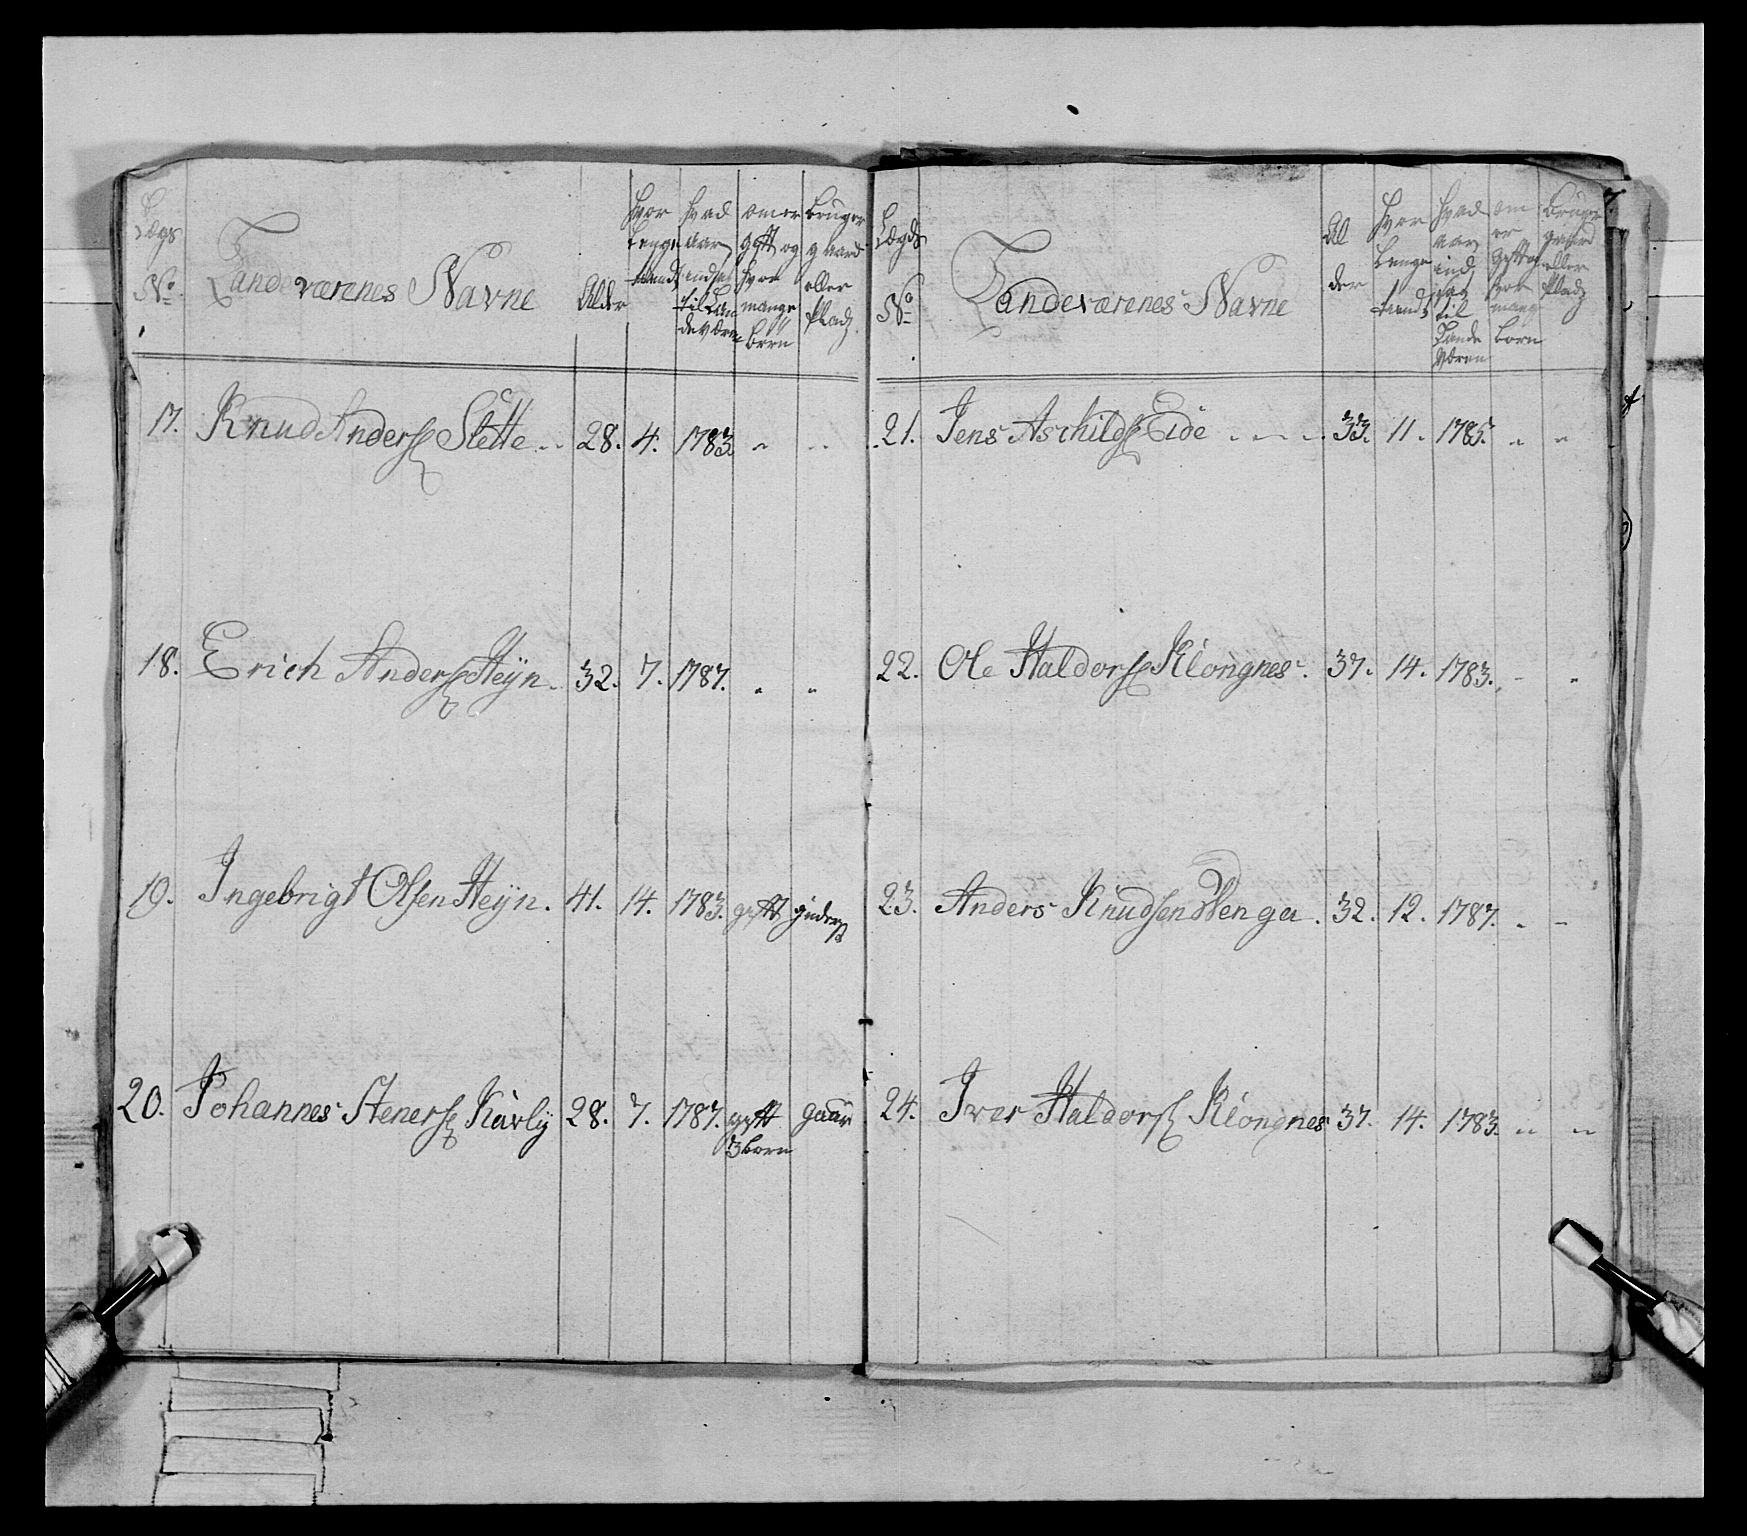 Lægs No
Landeværenes Navne
Alder
hvor Lenge tient
hvad aar indsat til Landeværn
om er gift og hvor mange børn
bruger gaard eller Plads
17. Knud Anderss Slette 28. 4. 1783. " "
18. Erich Anderss Heÿn 32. 7. 1787. " "
19. Ingebrigt Olsen Heÿn. 41. 14. 1783. gift
20. Johannes Stenerss Kavlÿ 28. 7. 1787. gift gaar
3 born
Lægds No
Landeværenes Navne
Al der
hvor Lenge tient
hvad aar ind sat til Lande Væren
om er gift og hvor mange born
bruger gaard eller Plads
21. Jens Aschilds Eide 33. 11. 1785. " "
22. Ole Haldorss Klongnes. 37. 14. 1783. " "
23. Anders Knudsen Wenga. 32. 12. 1787. " "
24. Iver Haldorss Klongnes 37. 14. 1783. " "